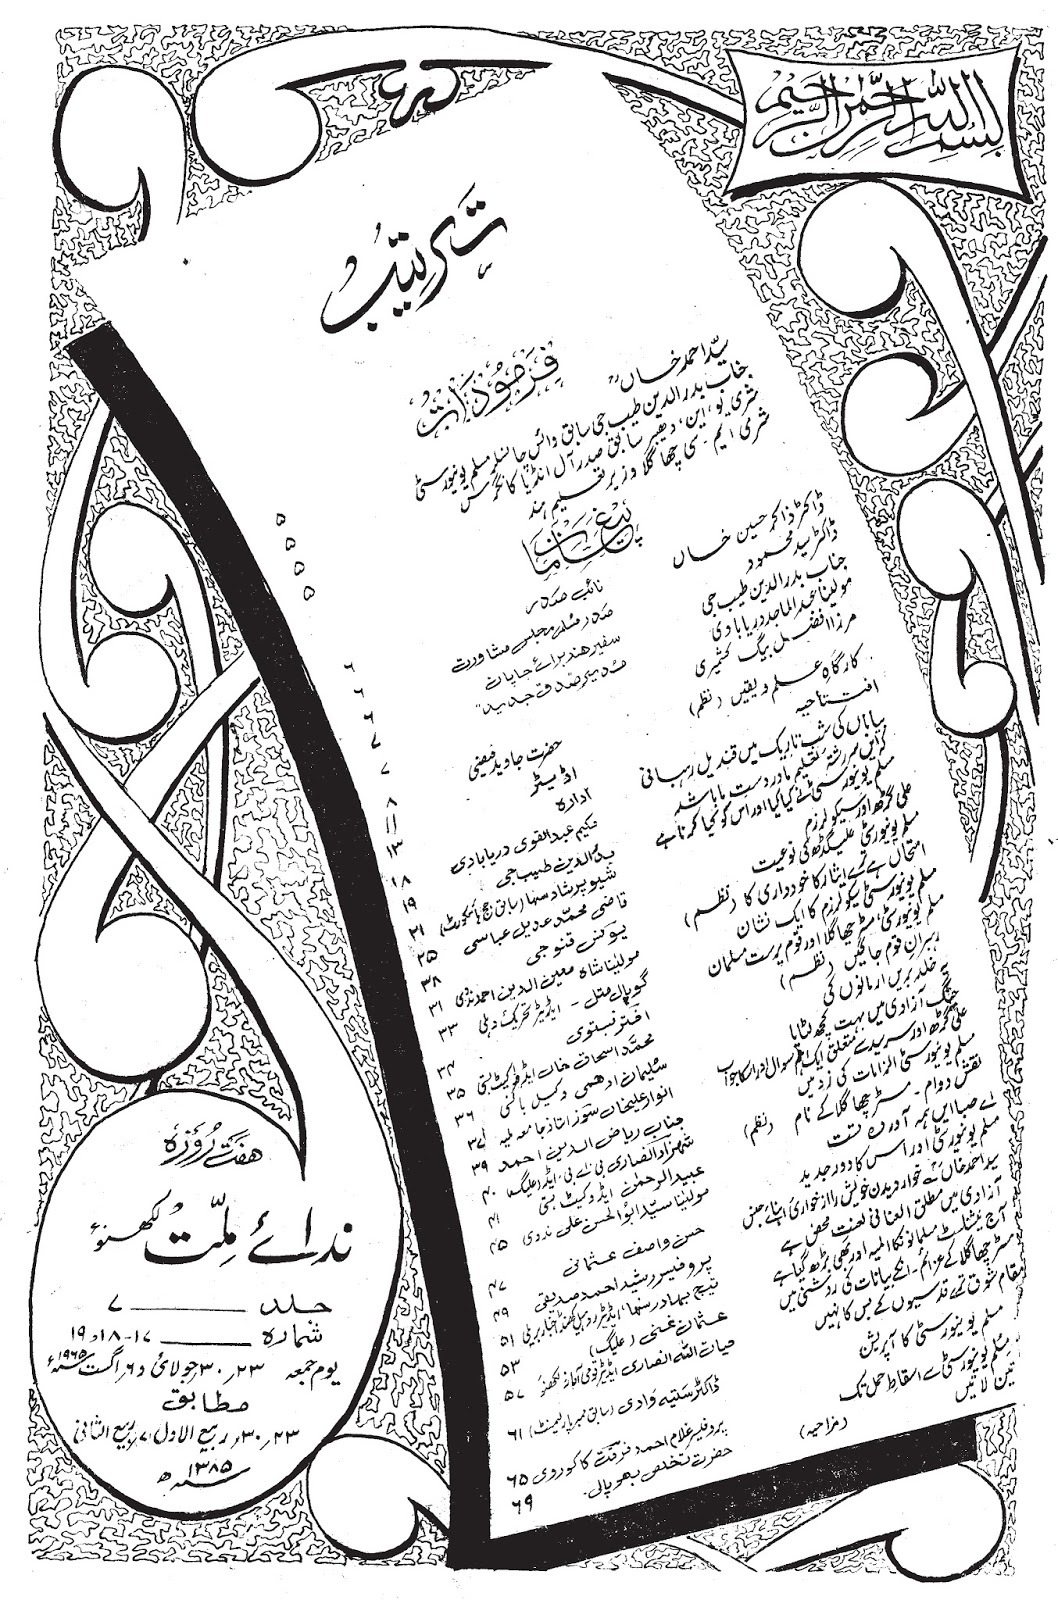 بسم اللہ الرحمٰن الرحیم
ترتیب
فرمودات
سید احمد خاںؒ ۵
جناب بدرالدین طیب جی سابق وائس چانسلر مسلم یونیورسٹی ۵
شری یو، این، دھیبر سابق صدر آل انڈیا کانگریس ۵
شری ایم۔ سی چھاگلا وزیر تعلیم ہند ۵
پیغامات
ڈاکٹر ذاکر حسین خاں نائب صدر ۶
ڈاکٹر سید محمود صدر مسلم مجلس مشاورت ۶
جناب بدرالدین طیب جی سفیر ہند برائے جاپان ۶
مولینا عبدالماجد دریابادی مدیر صدق جدید" ۷
مرزا افضل بیگ کشمیری ۷
کارگاہِ علم و یقیں (نظم) حضرت جاوید فیضی ۸
افتتاحیہ اڈیٹر ۱۱
بیاباں کی شب تاریک میں قندیل رہبانی ادارہ ۱۳
گر ایں سررشتۂ تعلیم مادر دست ما باشد حکیم عبدالقوی دریابادی ۱۸
مسلم یونیورسٹی نے کیا کیا اور اس کو کیا کرنا ہے بدرالدین طیب جی ۱۹
علی گڑھ اور سیکولرزم شیو پرشاد سنہا (سابق جج ہائیکورٹ) ۲۱
مسلم یونیورسٹی علیگڑھ کی نوعیت قاضی محمد عدیل عباسی ۲۵
امتحاں ہے ترے ایثار کا خودداری کا (نظم) یونس قنوجی ۲۸
مسلم یونیورسٹی سیکولرزم کا ایک نشان مولینا شاہ معین الدین احمد ندوی ۳۱
مسلم یونیورسٹی، مسٹر چھاگلا اور قوم پرست مسلمان گوپال متل - ایڈیٹر تحریک دہلی ۳۳
رہبرانِ قوم جاگیں (نظم) اختر بستوی ۳۴
یہ خلد بریں ارمانوں کی محمد اسحاق خاں ایڈوکیٹ بستی ۳۵
جنگ آزادی میں بہت کچھ لٹایا سلیمان ادھمی وکیل باگی ۳۶
علی گڑھ اور سرسید سے متعلق ایک اہم سوال اور اس کا جواب انوار علیخاں سوز استاذ جامعہ ملیہ ۳۷
مسلم یونیورسٹی الزامات کی زد میں جناب ریاض الدین احمد ۳۹
نقش دوام - مسٹر چھاگلا کے نام (نظم) شہزاد انصاری بی اے بی، ایڈ (علیگ) ۴۰
اے صبا ایں ہمہ آوردۂ تست عبیدالرحمٰن ایڈوکیٹ بستی ۴۱
مسلم یونیورسٹی اور اس کا دور جدید مولینا سید ابوالحسن علی ندوی ۴۵
سید احمد خاںؒ حسن واصف عثمانی ۴۷
آزادی میں مطلق العنانی لعنت محض ہے پروفیسر رشید احمد صدیقی ۴۹
آج نیشنلسٹ مسلمانوں کا المیہ اور بھی بڑھ گیا ہے تیج بہادر سنہا، ایڈیٹر روہیل کھنڈ اخبار بریلی ۵۱
مسٹر چھاگلا کے عزائم - انکے بیانات کی روشنی میں عثمان غنی (علیگ) ۵۳
مقام شوق ترے قدسیوں کے بس کا نہیں حیات اللہ انصاری ایڈیٹر قومی آواز لکھنؤ ۵۷
مسلم یونیورسٹی کا آپریشن ڈاکٹر ستیہ وادی (سابق ممبر پارلیمنٹ) ۶۱
مسلم یونیورسٹی سے اسقاط حمل تک (مزاحیہ) پروفیسر غلام احمد فرقت کاکوروی ۶۵
تین لاتیں حضرت تخلص بھوپالی۔ ۶۹
ہفت روزہ
ندائے ملت لکھنؤ
جلد ــــــــ ۷
شمارہ ــــــــ ۱۷-۱۸ و ۱۹
یوم جمعہ ۲۳، ۳۰ جولائی و ۶ اگست ۱۹۶۵ء
مطابق
۲۳، ۳۰ ربیع الاول، ۷ ربیع الثانی
۱۳۸۵ھ